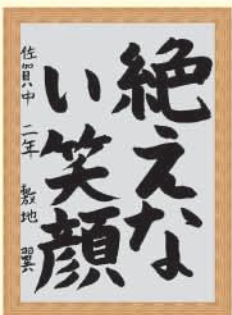 絶えな
い笑顔
佐賀中 二年 敷地 翼